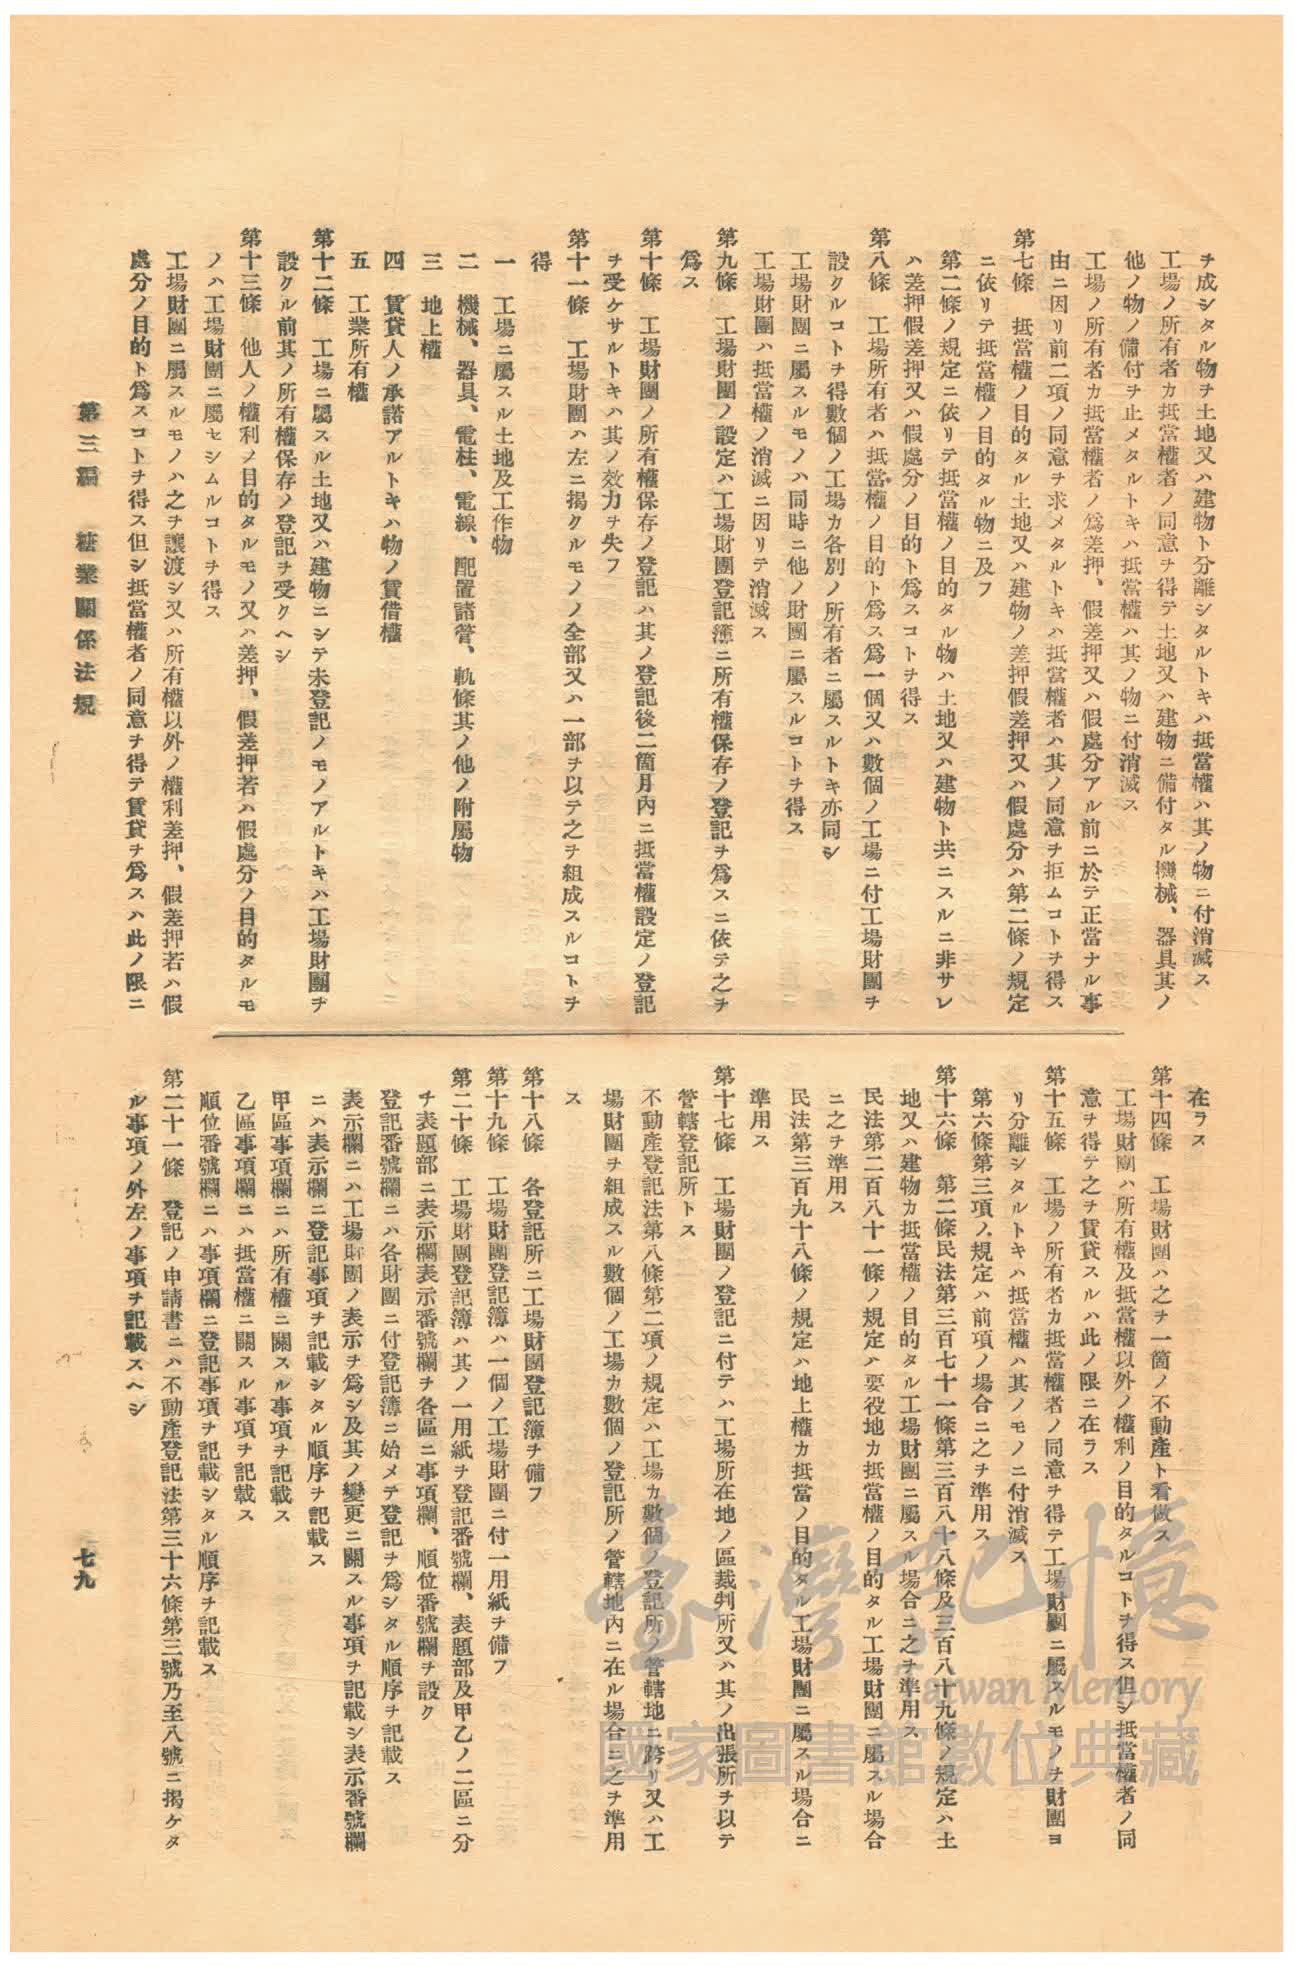 ヲ成シタル物ヲ土地又ハ建物ト分離シタルトキハ抵當權ハ其ノ物ニ付消滅ス
工場ノ所有者カ抵當權者ノ同意ヲ得テ土地又ハ建物ニ備付タル機械、器具其ノ
他ノ物ノ備付ヲ止メタルトキハ抵當權ハ其ノ物ニ付消滅ス
工場ノ所有者カ抵當權者ノ爲差押、假差押又ハ假處分アル前ニ於テ正當ナル事
由ニ因リ前二項ノ同意ヲ求メタルトキハ抵當權者ハ其ノ同意ヲ拒ムコトヲ得ス
第七條 抵當權ノ目的タル土地又ハ建物ノ差押假差押又ハ假處分ハ第二條ノ規定
ニ依リテ抵當權ノ目的タル物ニ及フ
第二條ノ規定ニ依リテ抵當權ノ目的タル物ハ土地又ハ建物ト共ニスルニ非サレ
ハ差押假差押又ハ假處分ノ目的ト爲スコトヲ得ス
第八條 工場所有者ハ抵當權ノ目的ト爲ス爲一個又ハ數個ノ工場ニ付工場財團ヲ
設クルコトヲ得數個ノ工場カ各別ノ所有者ニ屬スルトキ亦同シ
工場財團ニ屬スルモノハ同時ニ他ノ財團ニ屬スルコトヲ得ス
工場財團ハ抵當權ノ消滅ニ因リテ消滅ス
第九條 工場財團ノ設定ハ工場財團登記簿ニ所有權保存ノ登記ヲ爲スニ依テ之ヲ
爲ス
第十條 工場財團ノ所有權保存ノ登記ハ其ノ登記後二箇月內ニ抵當權設定ノ登記
ヲ受ケサルトキハ其ノ效力ヲ失フ
第十一條 工場財團ハ左ニ揭クルモノノ全部又ハ一部ヲ以テ之ヲ組成スルコトヲ
得
一 工場ニ屬スル土地及工作物
二 機械、器具、電柱、電線、配置諸管、軌條其ノ他ノ附屬物
三 地上權
四 賃貸人ノ承諾アルトキハ物ノ賃借權
五 工業所有權
第十二條 工場ニ屬スル土地又ハ建物ニシテ未登記ノモノアルトキハ工場財團ヲ
設クル前其ノ所有權保存ノ登記ヲ受クヘシ
第十三條 他人ノ權利ノ目的タルモノ又ハ差押、假差押若ハ假處分ノ目的タルモ
ノハ工場財團ニ屬セシムルコトヲ得ス
工場財團ニ屬スルモノハ之ヲ讓渡シ又ハ所有權以外ノ權利差押、假差押若ハ假
處分ノ目的ト爲スコトヲ得ス但シ抵當權者ノ同意ヲ得テ賃貸ヲ爲スハ此ノ限ニ
在ラス
第十四條 工場財團ハ之ヲ一箇ノ不動產ト看做ス
工場財團ハ所有權及抵當權以外ノ權利ノ目的タルコトヲ得ス但シ抵當權者ノ同
意ヲ得テ之ヲ賃貸スルハ此ノ限ニ在ラス
第十五條 工場ノ所有者カ抵當權者ノ同意ヲ得テ工場財團ニ屬スルモノヲ財團ヨ
リ分離シタルトキハ抵當權ハ其ノモノニ付消滅ス
第六條第三項ノ規定ハ前項ノ場合ニ之ヲ準用ス
第十六條 第二條民法第三百七十一條第三百八十八條及三百八十九條ノ規定ハ土
地又ハ建物カ抵當權ノ目的タル工場財團ニ屬スル場合ニ之ヲ準用ス
民法第二百八十一條ノ規定ハ要役地カ抵當權ノ目的タル工場財團ニ屬スル場合
ニ之ヲ準用ス
民法第三百九十八條ノ規定ハ地上權カ抵當ノ目的タル工場財團ニ屬スル場合ニ
準用ス
第十七條 工場財團ノ登記ニ付テハ工場所在地ノ區裁判所又ハ其ノ出張所ヲ以テ
管轄登記所トス
不動產登記法第八條第二項ノ規定ハ工場カ數個ノ登記所ノ管轄地ニ跨リ又ハ工
場財團ヲ組成スル數個ノ工場カ數個ノ登記所ノ管轄地內ニ在ル場合ニ之ヲ準用
ス
第十八條 各登記所ニ工場財團登記簿ヲ備フ
第十九條 工場財團登記簿ハ一個ノ工場財團ニ付一用紙ヲ備フ
第二十條 工場財團登記簿ハ其ノ一用紙ヲ登記番號欄、表題部及甲乙ノ二區ニ分
チ表題部ニ表示欄表示番號欄ヲ各區ニ事項欄、順位番號欄ヲ設ク
登記番號欄ニハ各財團ニ付登記簿ニ始メテ登記ヲ爲シタル順序ヲ記載ス
表示欄ニハ工場財團ノ表示ヲ爲シ及其ノ變更ニ關スル事項ヲ記載シ表示番號欄
ニハ表示欄ニ登記事項ヲ記載シタル順序ヲ記載ス
甲區事項欄ニハ所有權ニ關スル事項ヲ記載ス
乙區事項欄ニハ抵當權ニ關スル事項ヲ記載ス
順位番號欄ニハ事項欄ニ登記事項ヲ記載シタル順序ヲ記載ス
第二十一條 登記ノ申請書ニハ不動產登記法第三十六條第三號乃至八號ニ揭ケタ
ル事項ノ外左ノ事項ヲ記載スヘシ
第三編 糖業關係法規
七九
臺灣記憶
Taiwan Memory
國家圖書館數位典藏